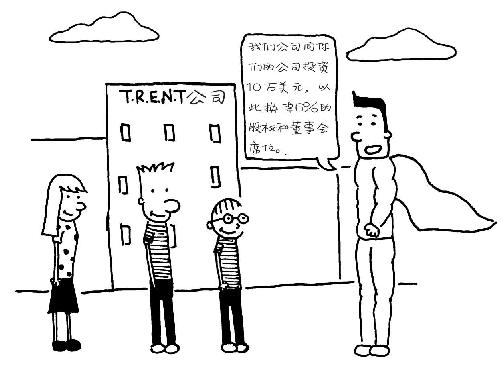 T.R.E.N.T公司
我们公司向你
们的公司投资
10万美元，以
此换取15%的
股权和董事会
席位。